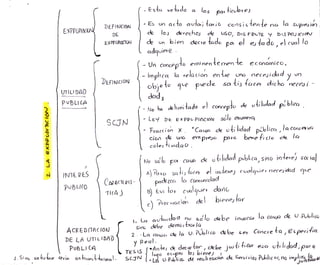 2. LA EXPROPIACION
EXPROPIACION
DEFINICION
DE
EXPROPIACION
- Esta vetado a los particulares
- Es un acto autoritario consistente en la supresión
de los derechos de USO, DISFRUTE y DISPOSICION
de un bien decretado por el estado, el cual lo
adquiere.
UTILIDAD
PUBLICA
DEFINICION
- Un concepto eminentemente económico.
- Implica la relación entre una necesidad y un
objeto que puede satisfacer dicha necesi-
dad.
SCJN
- No ha delimitado el concepto de utilidad pública
- LEY DE EXPROPIACION sólo
- Fracción X "Causa de utilidad pública, la
ción de una empresa para beneficio de la
colectividad.
INTERES
PUBLICO
CARACTERIS-
TICAS
No sólo por causa de utilidad pública, sino interés social
A) Para satisfacer el interés, cualquier necesidad que
padezca la comunidad
B) Evitar cualquier daño
C) Procuración del bienestar
ACREDITACION
DE LA UTILIDAD
PUBLICA
1. La autoridad no sólo debe invocar la causa de U. Publica
sino debe demostrarla
2. La causa de la U. Pública debe ser Concreta, Específica
y Real.
TESIS
SCJN
Antes de decretar, debe justificar esa utilidad, para
luego ocupar los bienes
La U. Pública de Servicios Públicos, no implica la
3. Sin acreditar sería